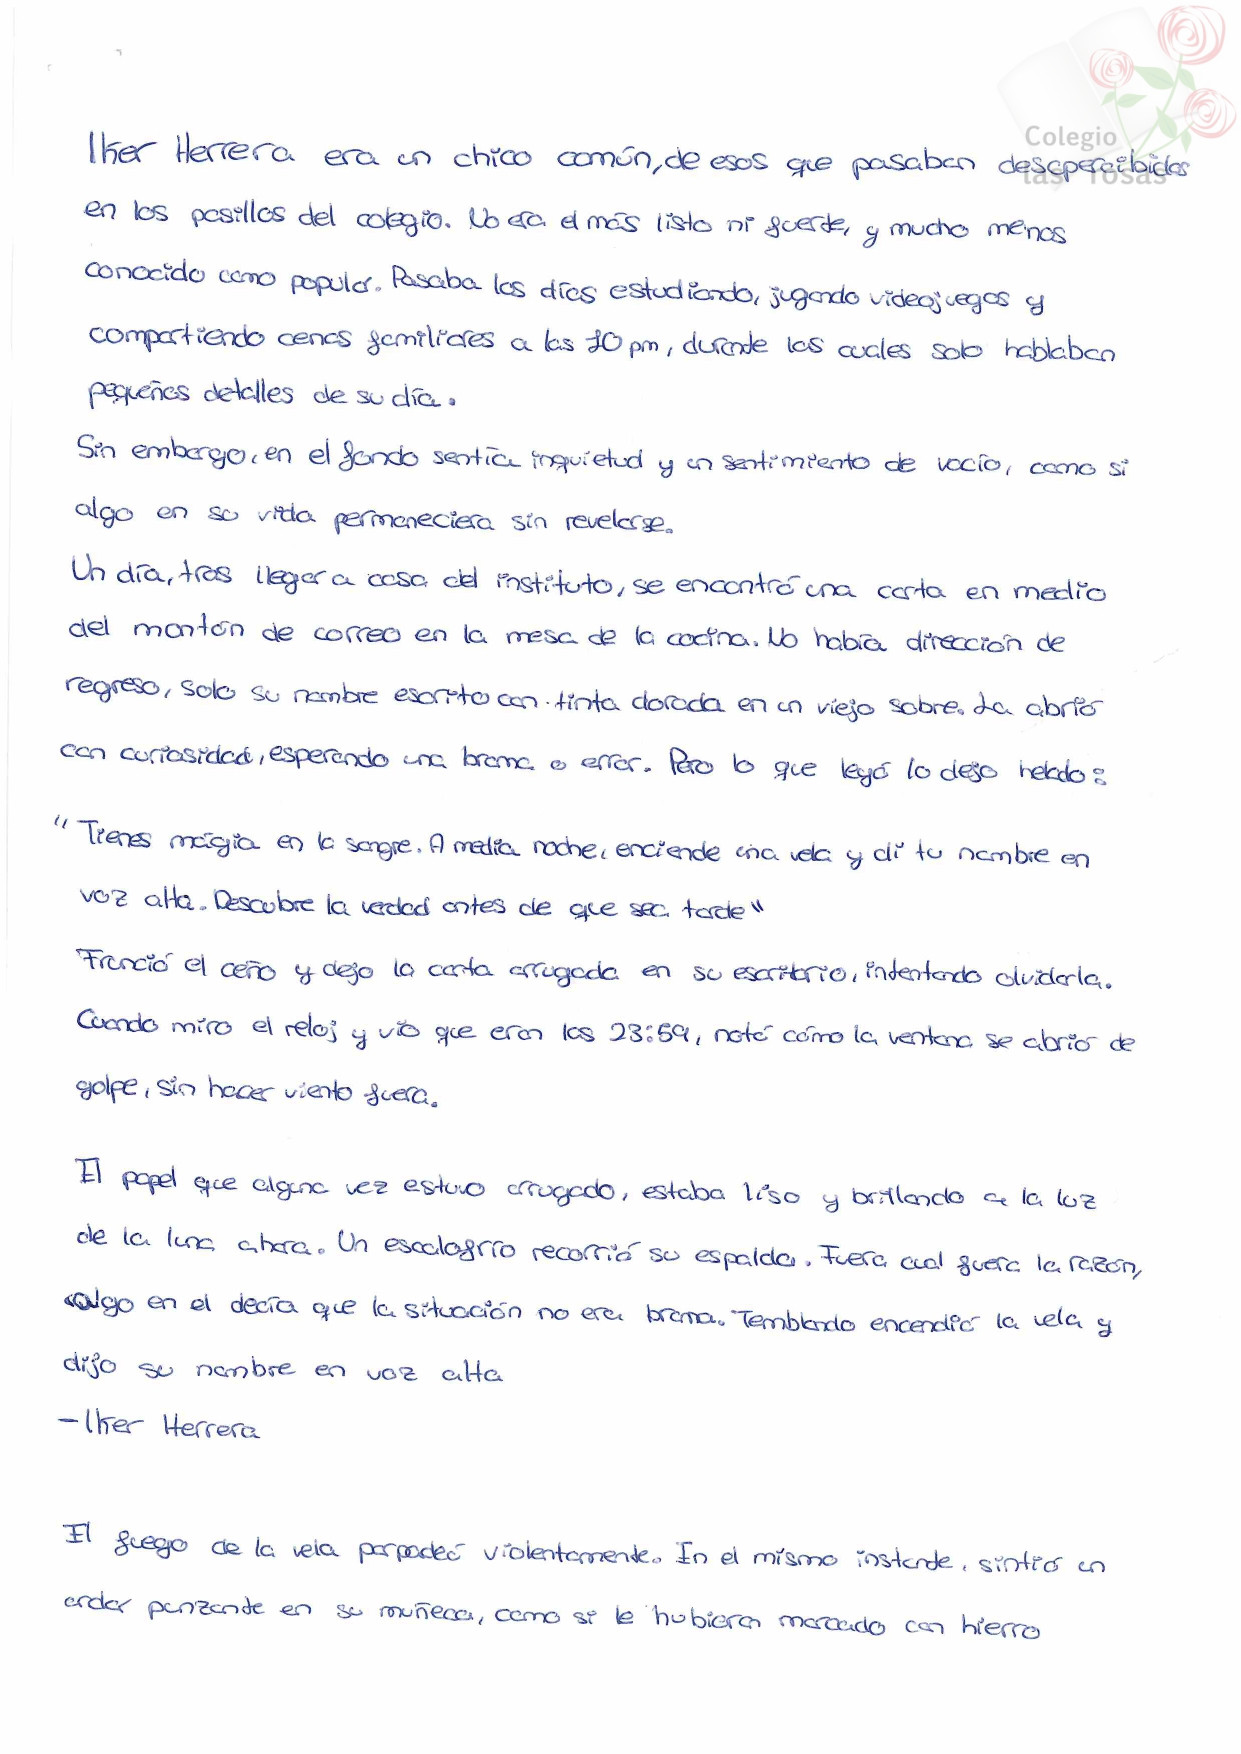 Colegio
las rosas
Iker Herrera era un chico común, de esos que pasaban desapercibidos
en los pasillos del colegio. No era el más listo ni fuerte, y mucho menos
conocido como popular. Pasaba los días estudiando, jugando videojuegos y
compartiendo cenas familiares a las 10 pm, durante las cuales solo hablaban
pequeños detalles de su día.
Sin embargo, en el fondo sentía inquietud y un sentimiento de vacío, como si
algo en su vida permaneciera sin revelarse.
Un día, tras llegar a casa del instituto, se encontró una carta en medio
del montón de correo en la mesa de la cocina. No había dirección de
regreso, solo su nombre escrito con tinta dorada en un viejo sobre. La abrió
con curiosidad, esperando una broma o error. Pero lo que leyó lo dejo helado:
"Tienes mágia en la sangre. A media noche, enciende una vela y di tu nombre en
voz alta. Descubre la verdad antes de que sea tarde"
Frunció el ceño y dejo la carta arrugada en su escritorio, intentando olvidarla.
Cuando miro el reloj y vio que eran las 23:59, notó cómo la ventana se abrió de
golpe, sin hacer viento fuera.
El papel que alguna vez estuvo arrugado, estaba liso y brillando a la luz
de la luna ahora. Un escalofrío recorrió su espalda. Fuera cual fuera la razón,
algo en el decía que la situación no era broma. Temblando encendió la vela y
dijo su nombre en voz alta
-Iker Herrera
El fuego de la vela parpadeó violentamente. En el mismo instante, sintió un
ardor punzante en su muñeca, como si le hubieran marcado con hierro